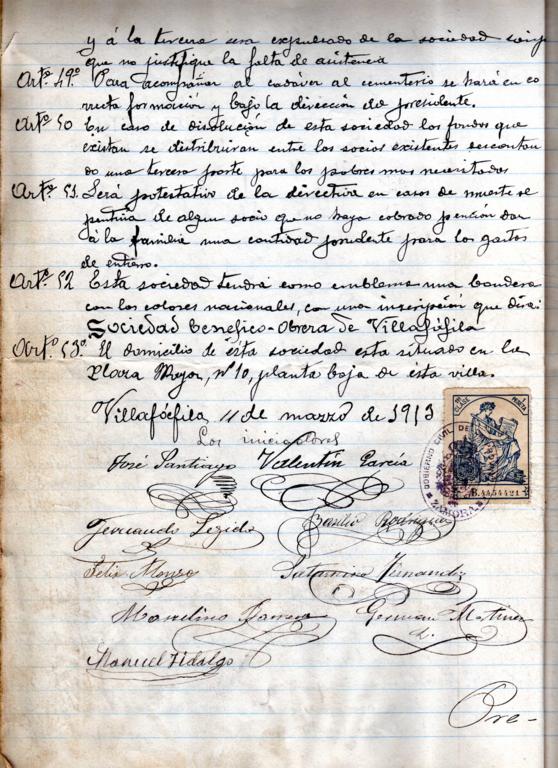 y á la tercera será expulsado de la sociedad
que no justifique la falta de asistencia
Artº. 49.º Para acompañar al cadáver al cementerio se hará en co
rrecta formación y bajo la dirección del presidente.
Artº. 50 En caso de disolución de esta sociedad los fondos que
existan se distribuiran entre los socios existentes descontan
do una tercera parte para los pobres mas necesitados
Artº. 51. Será potestativo de la directiva en casos de muerte
de algun socio que no haya cobrado pensión dar
á la familia una cantidad prudente para los gastos
de entierro.
Artº. 52 Esta sociedad tendrá como emblema una bandera
con los colores nacionales, con una inscripción que dira:
Sociedad Benéfico-Obrera de Villafáfila
Artº. 53º. El domicilio de esta sociedad esta situado en la
Plaza Mayor, nº 10, planta baja de esta villa.
Villafáfila 11 de marzo de 1913
Los iniciadores
José Santiago Valentín García
GOBIERNO CIVIL DE
ZAMORA
B.4454421
Fernando Legido Basilio Rodriguez
Felix Alonso Fernandez
Marcelino German
Manuel Hidalgo
Pre-